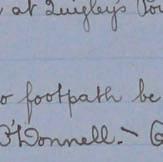 at Quigley's
to footpath be
O'Donnell. —